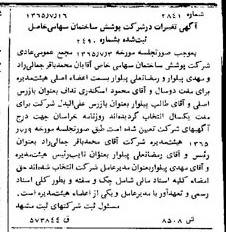 شماره ۲۸۴۱ ۱۳۶۵/۷/۱۶
آگهی تغییرات در شرکت پوشش ساختمان سهامی خاص
ثبت شده بشماره ۲۴۹۰
بموجب صورتجلسه مورخه ۱۳۶۵/۷/۳ مجمع عمومی عادی
شرکت پوشش ساختمان سهامی خاص آقایان محمدباقر جمالی‌راد
و مهدی پیلوار و رمضانعلی پیلوار بسمت اعضاء اصلی هیئت‌مدیره
برای مدت دو سال و آقای محمود اسکندری ثداف بعنوان بازرس
اصلی و آقای طالب پیلوار بعنوان بازرس علی‌البدل شرکت برای
مدت یکسال انتخاب گردیده‌اند روزنامه خراسان جهت درج
آگهیهای شرکت تعیین شده است طبق صورتجلسه مورخه
۱۳۶۵ هیئت‌مدیره شرکت آقای محمدباقر جمالی‌راد بعنوان
رئیس و آقای رمضانعلی پیلوار بعنوان نایب‌رئیس هیئت‌مدیره
و آقای مهدی پیلوار بعنوان مدیرعامل شرکت انتخاب شده‌اند حق
امضاء کلیه اسناد مالی شامل چک و سفته و بطور کلی اسناد
رسمی و تعهدآور با مدیرعامل و یکی از اعضاء هیئت‌مدیره است.
مسئول ثبت شرکتهای ثبت مشهد
تی ۸۵۰۸ ف ۵۷۳۸۴۴